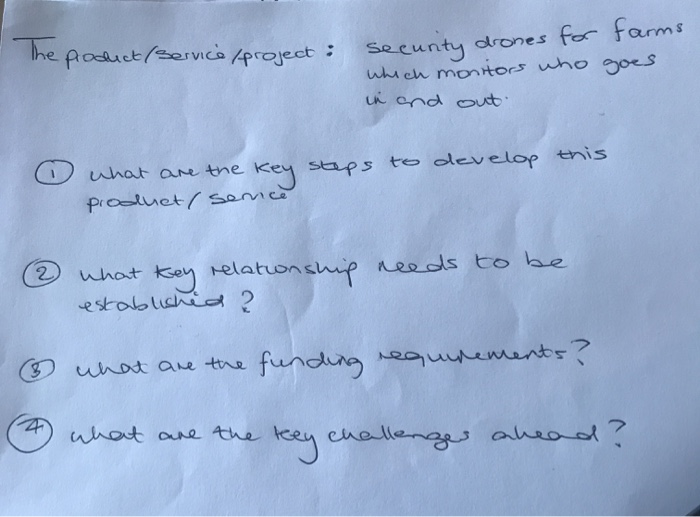 The product/service/project : security drones for farms
which monitors who goes
in and out.
① what are the key steps to develop this
product/service
② what key relationship needs to be
established?
③ what are the funding requirements?
④ what are the key challenges ahead?